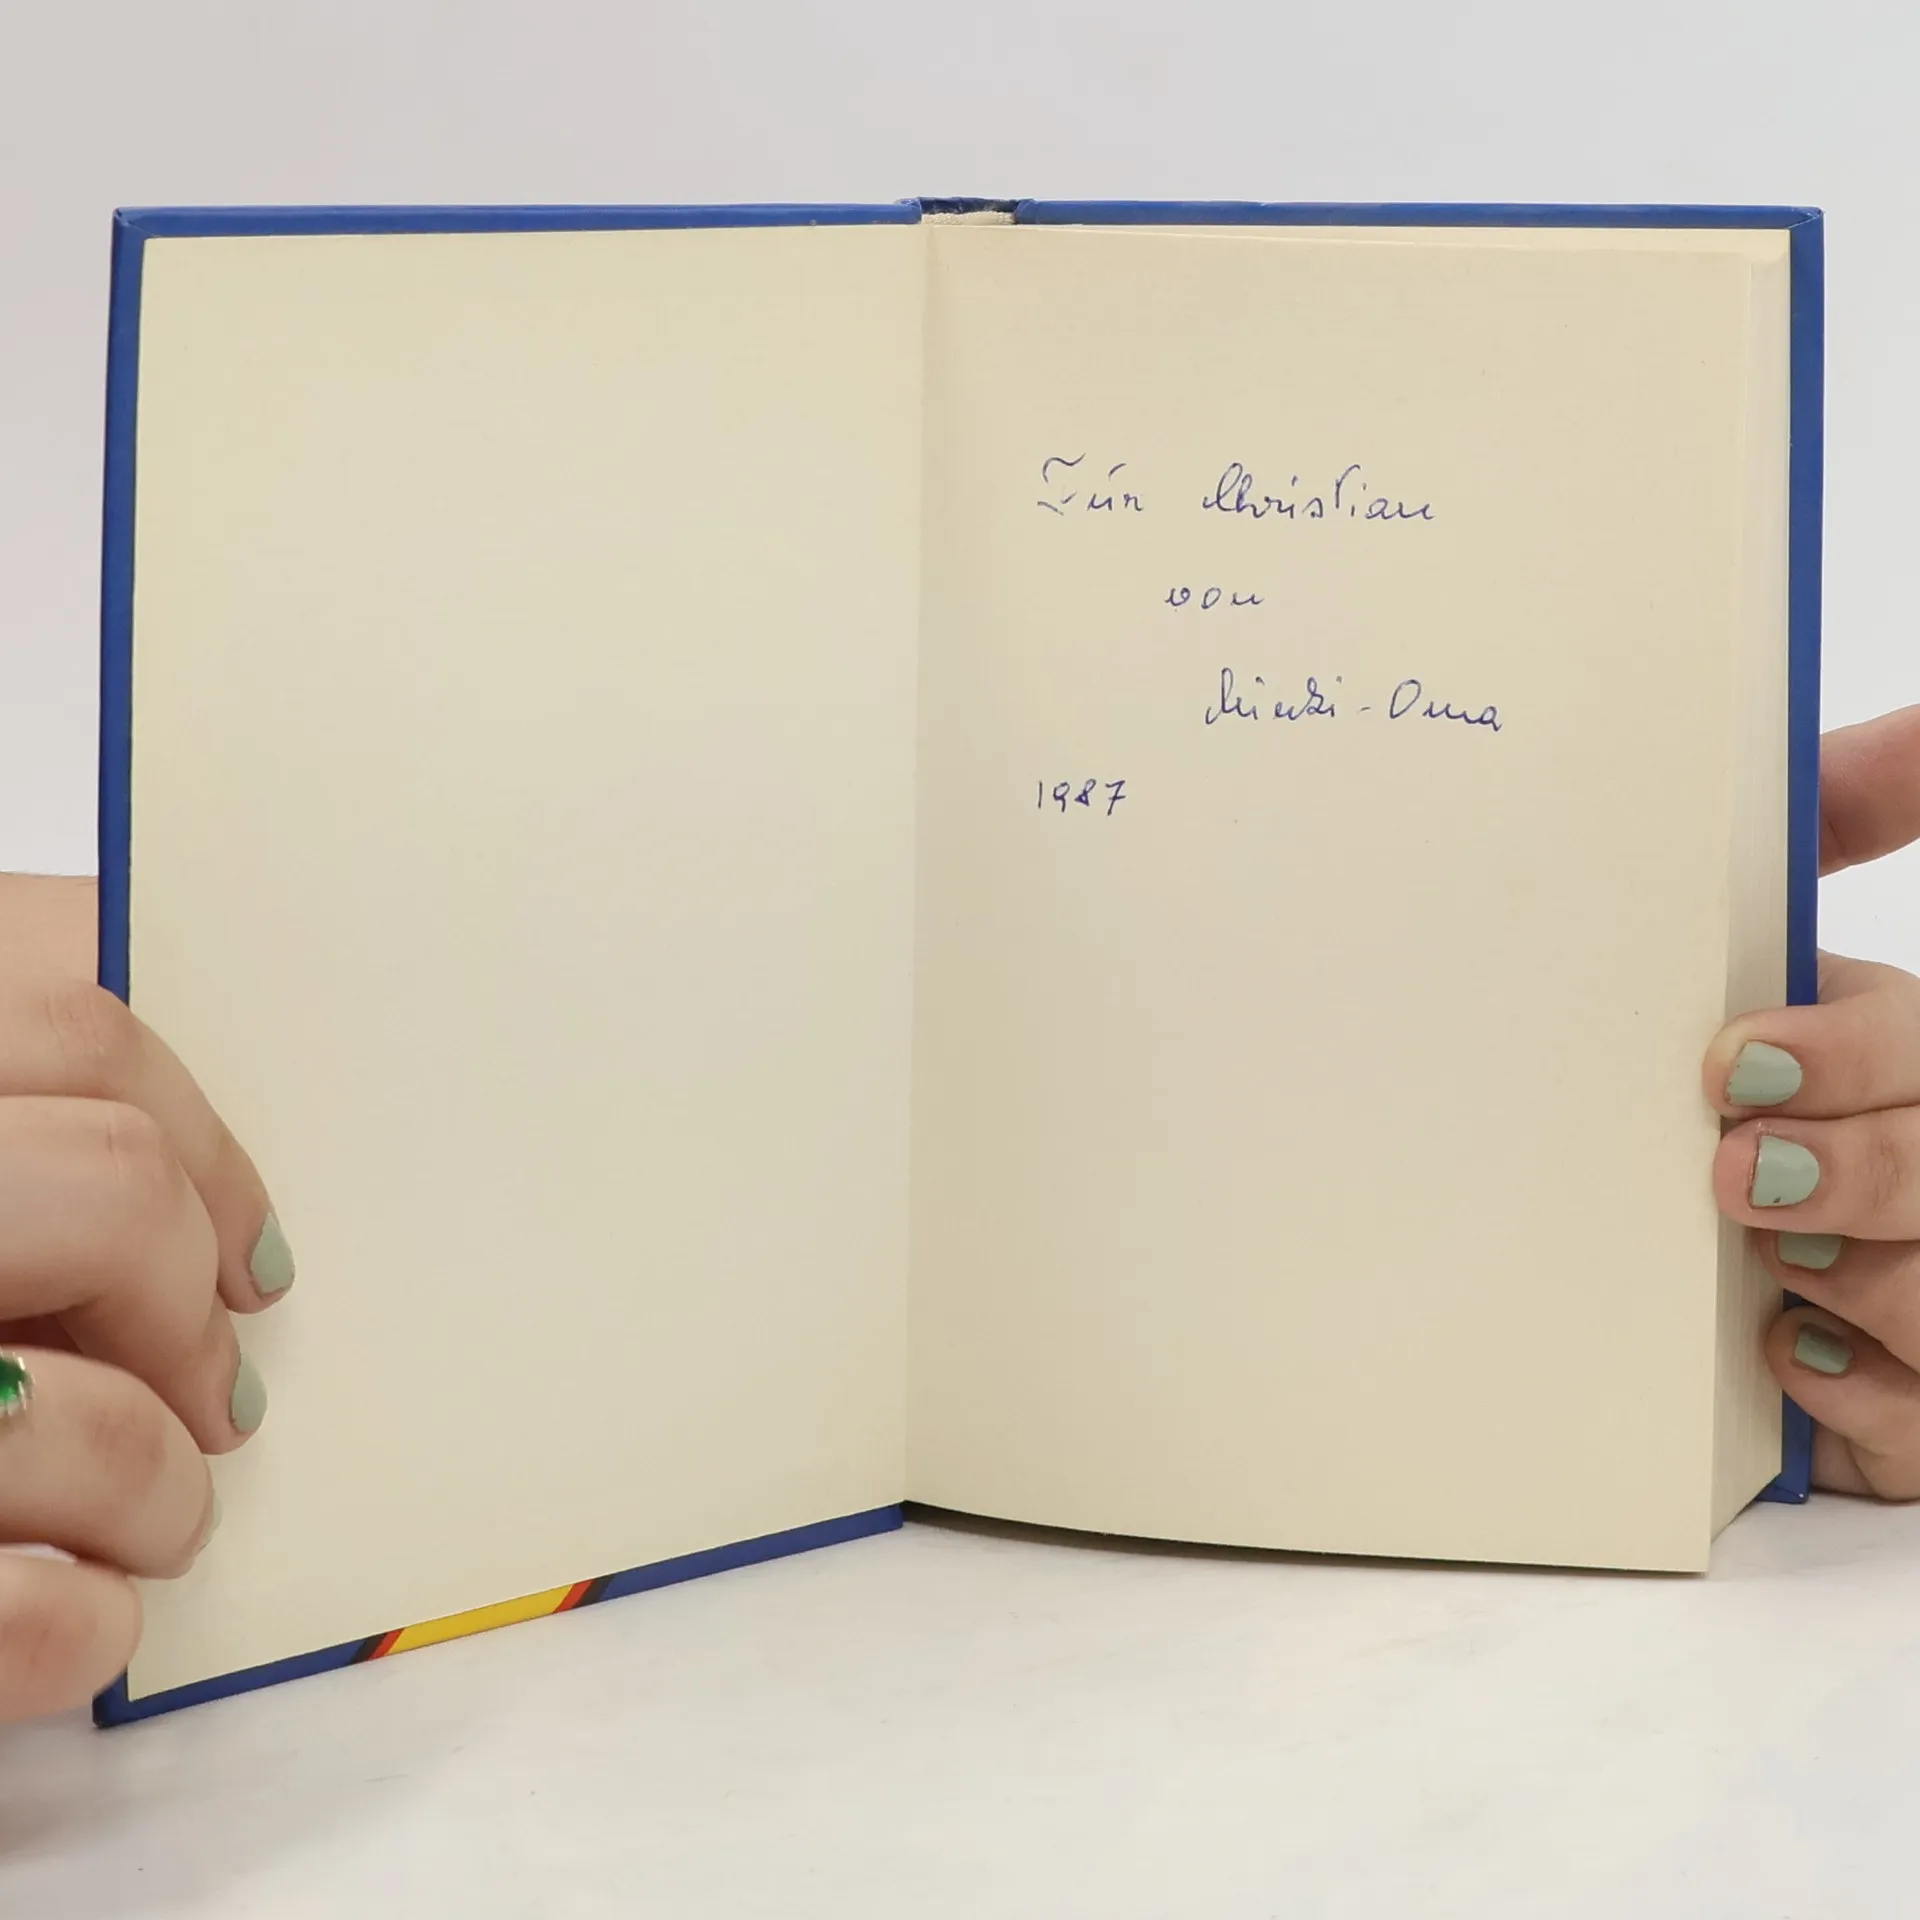 Für Christian
von
Minki-Oma
1987